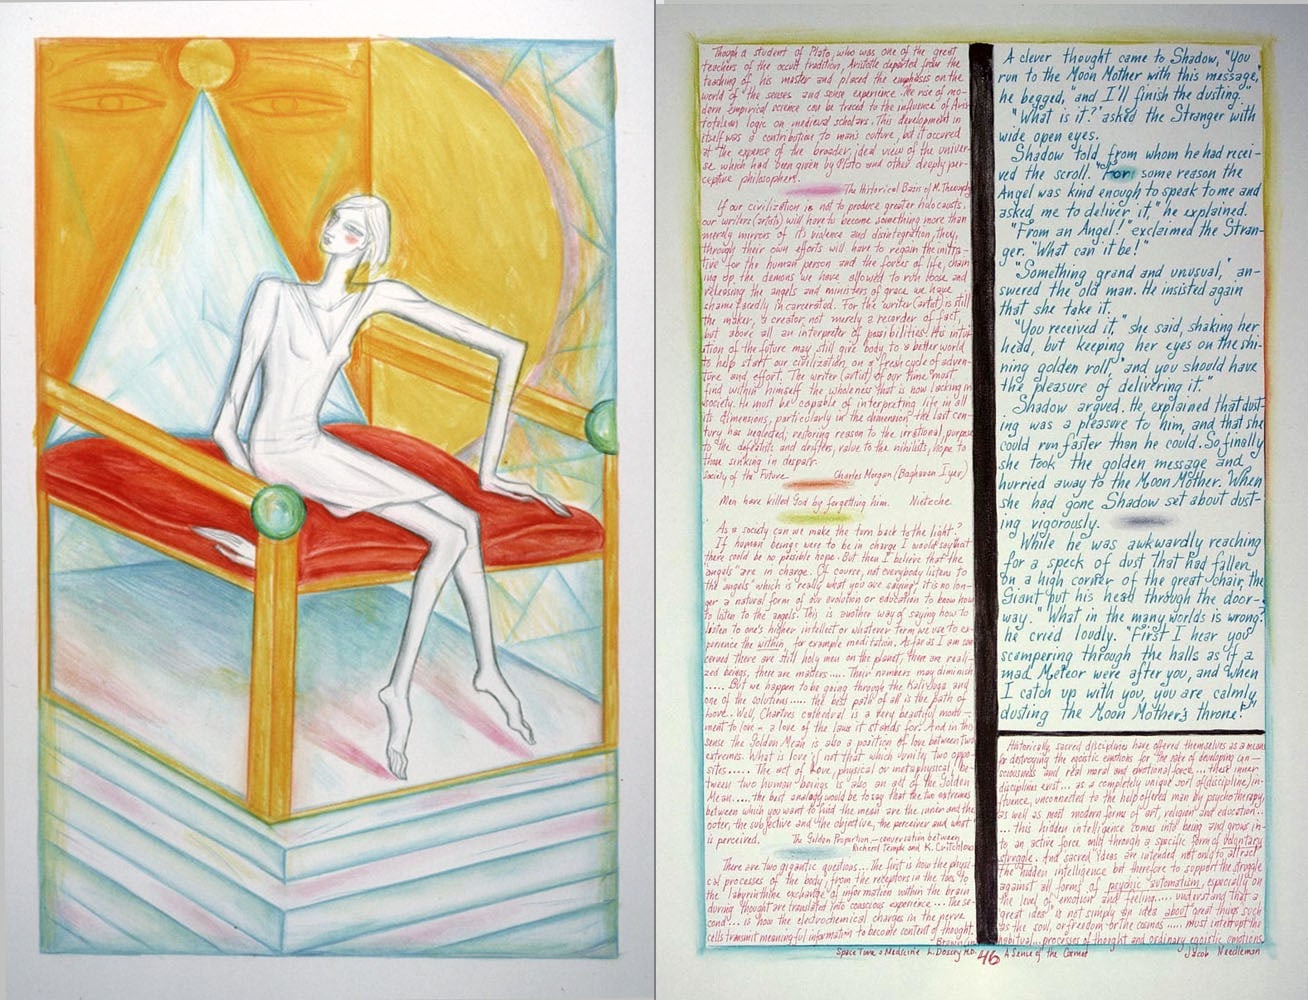 Though a student of Plato, who was one of the great
teachers of the occult tradition, Aristotle departed from the
teaching of his master and placed the emphasis on the
world of the senses and sense experience. The rise of mo-
dern empirical science can be traced to the influence of Aris-
totelean logic on medieval scholars. This development in
itself was a contribution to man's culture, but it occured
at the expense of the broader, ideal view of the univer-
se which had been given by Plato and other deeply per-
ceptive philosophers.
The Historical Basis of M. Theosophy
If our civilization is not to produce greater holocausts,
our writers (artists) will have to become something more than
merely mirrors of its violence and disintegration, they,
through their own efforts will have to regain the initia-
tive for the human person and the forces of life, chain-
ing up the demons we have allowed to run loose and
releasing the angels and ministers of grace we have
shamefacedly incarcerated. For the writer (artist) is still
the maker, a creator, not merely a recorder of fact,
but above all an interpreter of possibilities. His intui-
tion of the future may still give body to a better world
to help start our civilization on a fresh cycle of adven-
ture and effort. The writer (artist) of our time must
find within himself the wholeness that is now lacking in
society. He must be capable of interpreting life in all
its dimensions, particularly in the dimension the last cen-
tury has neglected, restoring reason to the irrational, purpose
to the defeatists and drifters, value to the nihilists, hope to
those sinking in despair.
Society of the Future Charles Morgan (Raghavan Iyer)
Men have killed God by forgetting him. Nietzche
As a society can we make the turn back to the light?
If human beings were to be in charge I would say that
there could be no possible hope. But then I believe that the
"angels" are in charge. Of course, not everybody listens to
the "angels" which is really what you are saying; it is no lon-
ger a natural form of our evolution or education to know how
to listen to the angels. This is another way of saying how to
listen to one's higher intellect or whatever term we use to ex-
perience the within, for example meditation. As far as I am con
cerned there are still holy men on the planet, there are reali-
zed beings, there are masters.... Their numbers may diminish
..... But we happen to be going through the Kali Yuga and
one of the solutions..... the best path of all is the path of
Love. Well, Chartres cathedral is a very beautiful monu-
ment to love - a love of the laws it stands for. And in this
sense the Golden Mean is also a position of love between two
extremes. What is love if not that which unites two oppo-
sites..... The act of love, physical or metaphysical, be-
tween two human beings is also an act of the Golden
Mean..... the best analogy would be to say that the two extremes
between which you want to find the mean are the inner and the
outer, the subjective and the objective, the perceiver and what
is perceived.
The Golden Proportion - conversation between
Richard Temple and K. Critchlow
There are two gigantic questions... The first is how the physi-
cal processes of the body, from the receptors in the toes to
the labyrinthine exchange of information within the brain
during thought are translated into conscious experience.... The se-
cond... is how the electrochemical charges in the nerve
cells transmit meaningful information to become content of thought.
Space Time & Medicine L. Dossey M.D.
46
A clever thought came to Shadow, "You
run to the Moon Mother with this message,"
he begged, "and I'll finish the dusting."
"What is it?" asked the Stranger with
wide open eyes.
Shadow told from whom he had recei-
ved the scroll. "For some reason the
Angel was kind enough to speak to me and
asked me to deliver it," he explained.
"From an Angel!" exclaimed the Stran-
ger. "What can it be!"
"Something grand and unusual," an-
swered the old man. He insisted again
that she take it.
"You received it," she said, shaking her
head, but keeping her eyes on the shi-
ning golden roll, "and you should have
the pleasure of delivering it."
Shadow argued. He explained that dust-
ing was a pleasure to him, and that she
could run faster than he could. So finally
she took the golden message and
hurried away to the Moon Mother. When
she had gone Shadow set about dust-
ing vigorously.
While he was awkwardly reaching
for a speck of dust that had fallen
on a high corner of the great chair, the
Giant put his head through the door-
way. "What in the many worlds is wrong?"
he cried loudly. "First I hear you
scampering through the halls as if a
mad Meteor were after you, and when
I catch up with you, you are calmly
dusting the Moon Mother's throne!"
Historically, sacred disciplines have offered themselves as a means
for destroying the egoistic emotions for the sake of developing con-
sciousness and real moral and emotional force.... these inner
disciplines exist... as a completely unique sort of discipline/in-
fluence, unconnected to the help offered man by psychotherapy,
as well as most modern forms of art, religion and education...
... this hidden intelligence comes into being and grows in-
to an active force only through a specific form of voluntary
struggle. And sacred ideas are intended not only to attract
the hidden intelligence but therefore to support the struggle
against all forms of psychic automatism, especially on
the level of emotion and feeling..... understand that a
"great idea" is not simply an idea about great things such
as the soul, or freedom or the cosmos..... must interrupt the
habitual... processes of thought and ordinary egoistic emotions.
A Sense of the Cosmos Jacob Needleman